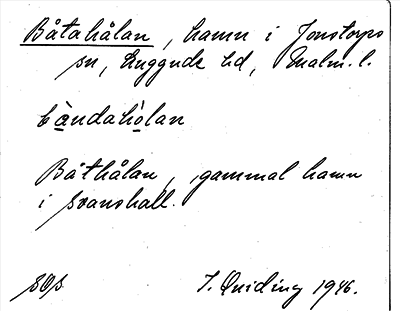 Båtahålan, hamn i Jonstorps
sn, Luggude hd, Malm. l.
bàndahòlan
Båthålan, gammal hamn
i Svanshall.
SOp
I. Quiding 1946.